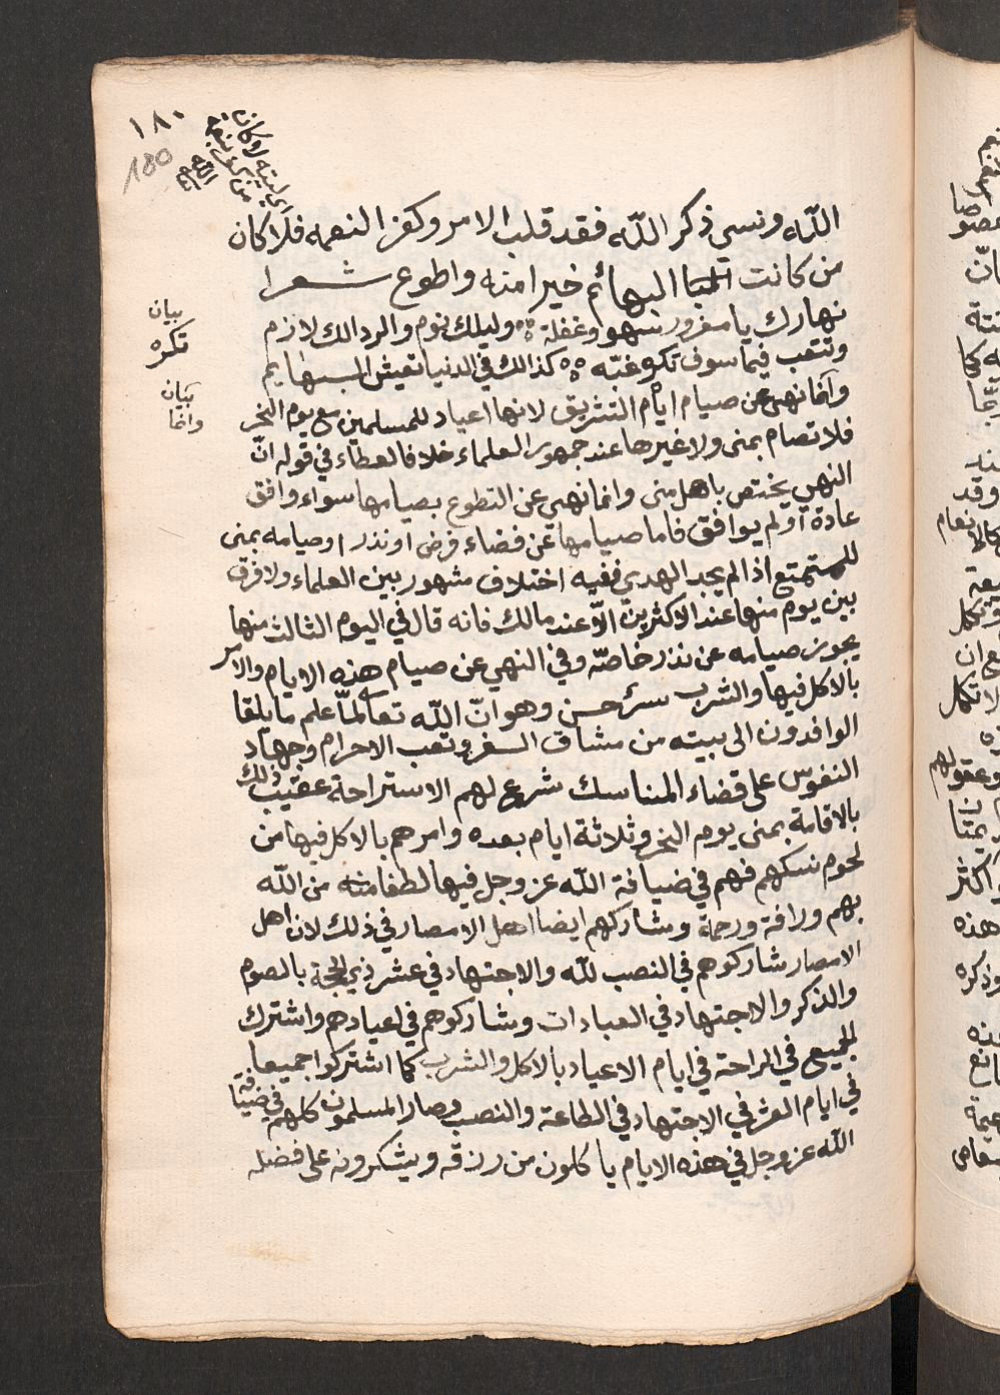 ١٨٠
180
الله ونسي ذكر الله فقد قلب الامر وكفر النعمه فلا كان
من كانت البهائم خيرا منه واطوع شعرا
نهارك يا مغرور سهو وغفلة وليلك نوم والردالك لازم
وتتعب فيما سوف تكره غبّه كذالك في الدنيا تعيش البهايم
وانما نهي عن صيام ايام التشريق لانها اعياد للمسلمين مع يوم النحر
فلا تصام بمنى ولا غيرها عند جمهور العلماء خلافا لعطاء في قوله انّ
النهي يختص باهل منى وانما نهي عن التطوع بصيامها سواء وافق
عادة أو لم يوافق فاما صيامها عن قضاء فرض او نذر اوصيامه بمنى
للمتمتع اذا لم يجد الهدي ففيه اختلاف مشهور بين العلماء ولا فرق
بين يوم منها عند الاكثرين الّا عند مالك فانه قال في اليوم الثالث منها
يجوز صيامه عن نذر خاصّه وفي النهي عن صيام هذه الايام والامر
بالاكل فيها والشرب سرٌ حسن وهو انّ الله تعالى لمّا علم ما يلقا
الوافدون الى بيته من مشاق السفر وتعب الاحرام وجهاد
النفوس على قضاء المناسك شرع لهم الاستراحة عقيب ذلك
بالاقامة بمنى يوم النحر وثلاثة ايام بعده وامرهم بالاكل فيها من
لحوم نسكهم فهم في ضيافة الله عز وجل فيها لطفا من الله
بهم ورافة ورحمة وشاركهم ايضا اهل الامصار في ذلك لان اهل
الامصار شاركوهم في النصب لله والاجتهاد في عشر ذي الحجة بالصوم
والذكر والاجتهاد في العبادات وشاركوهم في اعيادهم واشترك
الجميع في الراحة في ايام الاعياد بالاكل والشرب كما اشتركوا جميعا
في ايام العشر في الاجتهاد في الطاعة والنصب وصار المسلمون كلهم في ضيافة
الله عز وجل في هذه الايام ياكلون من رزقه ويشكرونه على فضله
بيان
تكره
بيان
وانما